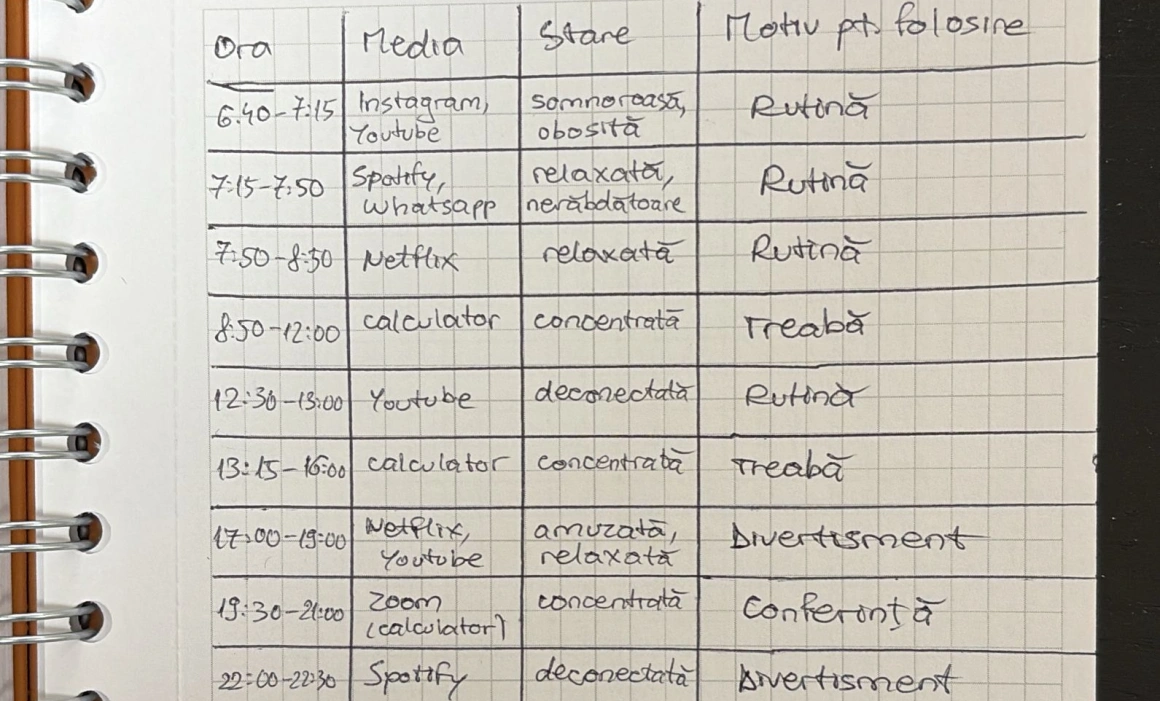 Ora Media Stare Motiv pt. folosire
6:40-7:15 Instagram, somnoroasă, Rutină
Youtube obosită
7:15-7:50 Spotify, relaxată, Rutină
Whatsapp nerăbdătoare
7:50-8:50 Netflix relaxată Rutină
8:50-12:00 calculator concentrată Treabă
12:30-13:00 Youtube deconectată Rutină
13:15-16:00 calculator concentrată Treabă
17:00-19:00 Netflix, amuzată, Divertisment
Youtube relaxată
19:30-21:00 Zoom concentrată Conferință
(calculator)
22:00-22:30 Spotify deconectată Divertisment